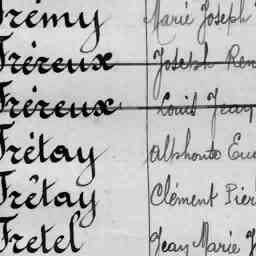 Frémy Marie Joseph
Fréreux Joseph Ren
Fréreux Louis Jean
Frétay Alphonse Eug
Frétay Clément Pier
Fretel Jean Marie J